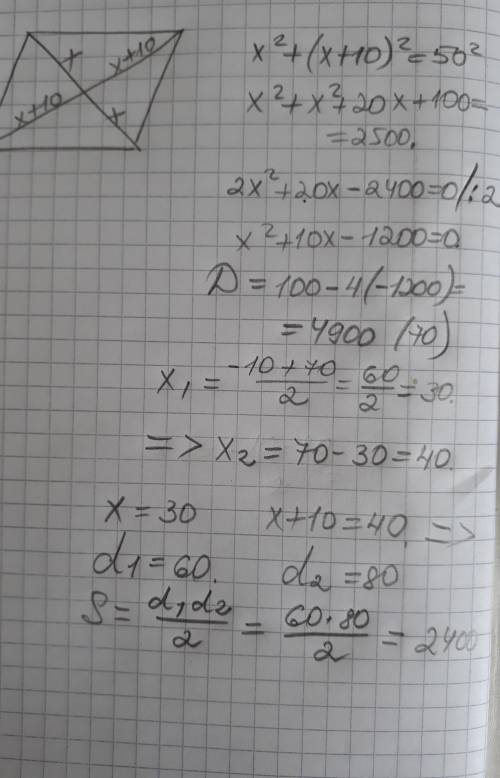 x x+10
x+10 x
x² + (x+10)² = 50²
x² + x² + 20x + 100 =
= 2500.
2x² + 20x - 2400 = 0 /:2
x² + 10x - 1200 = 0
D = 100 - 4(-1200) =
= 4900 (70)
x₁ = (-10 + 70)/2 = 60/2 = 30.
=> x₂ = 70 - 30 = 40.
x = 30 x+10 = 40, =>
d1 = 60. d2 = 80
S = (d1d2)/2 = (60·80)/2 = 2400